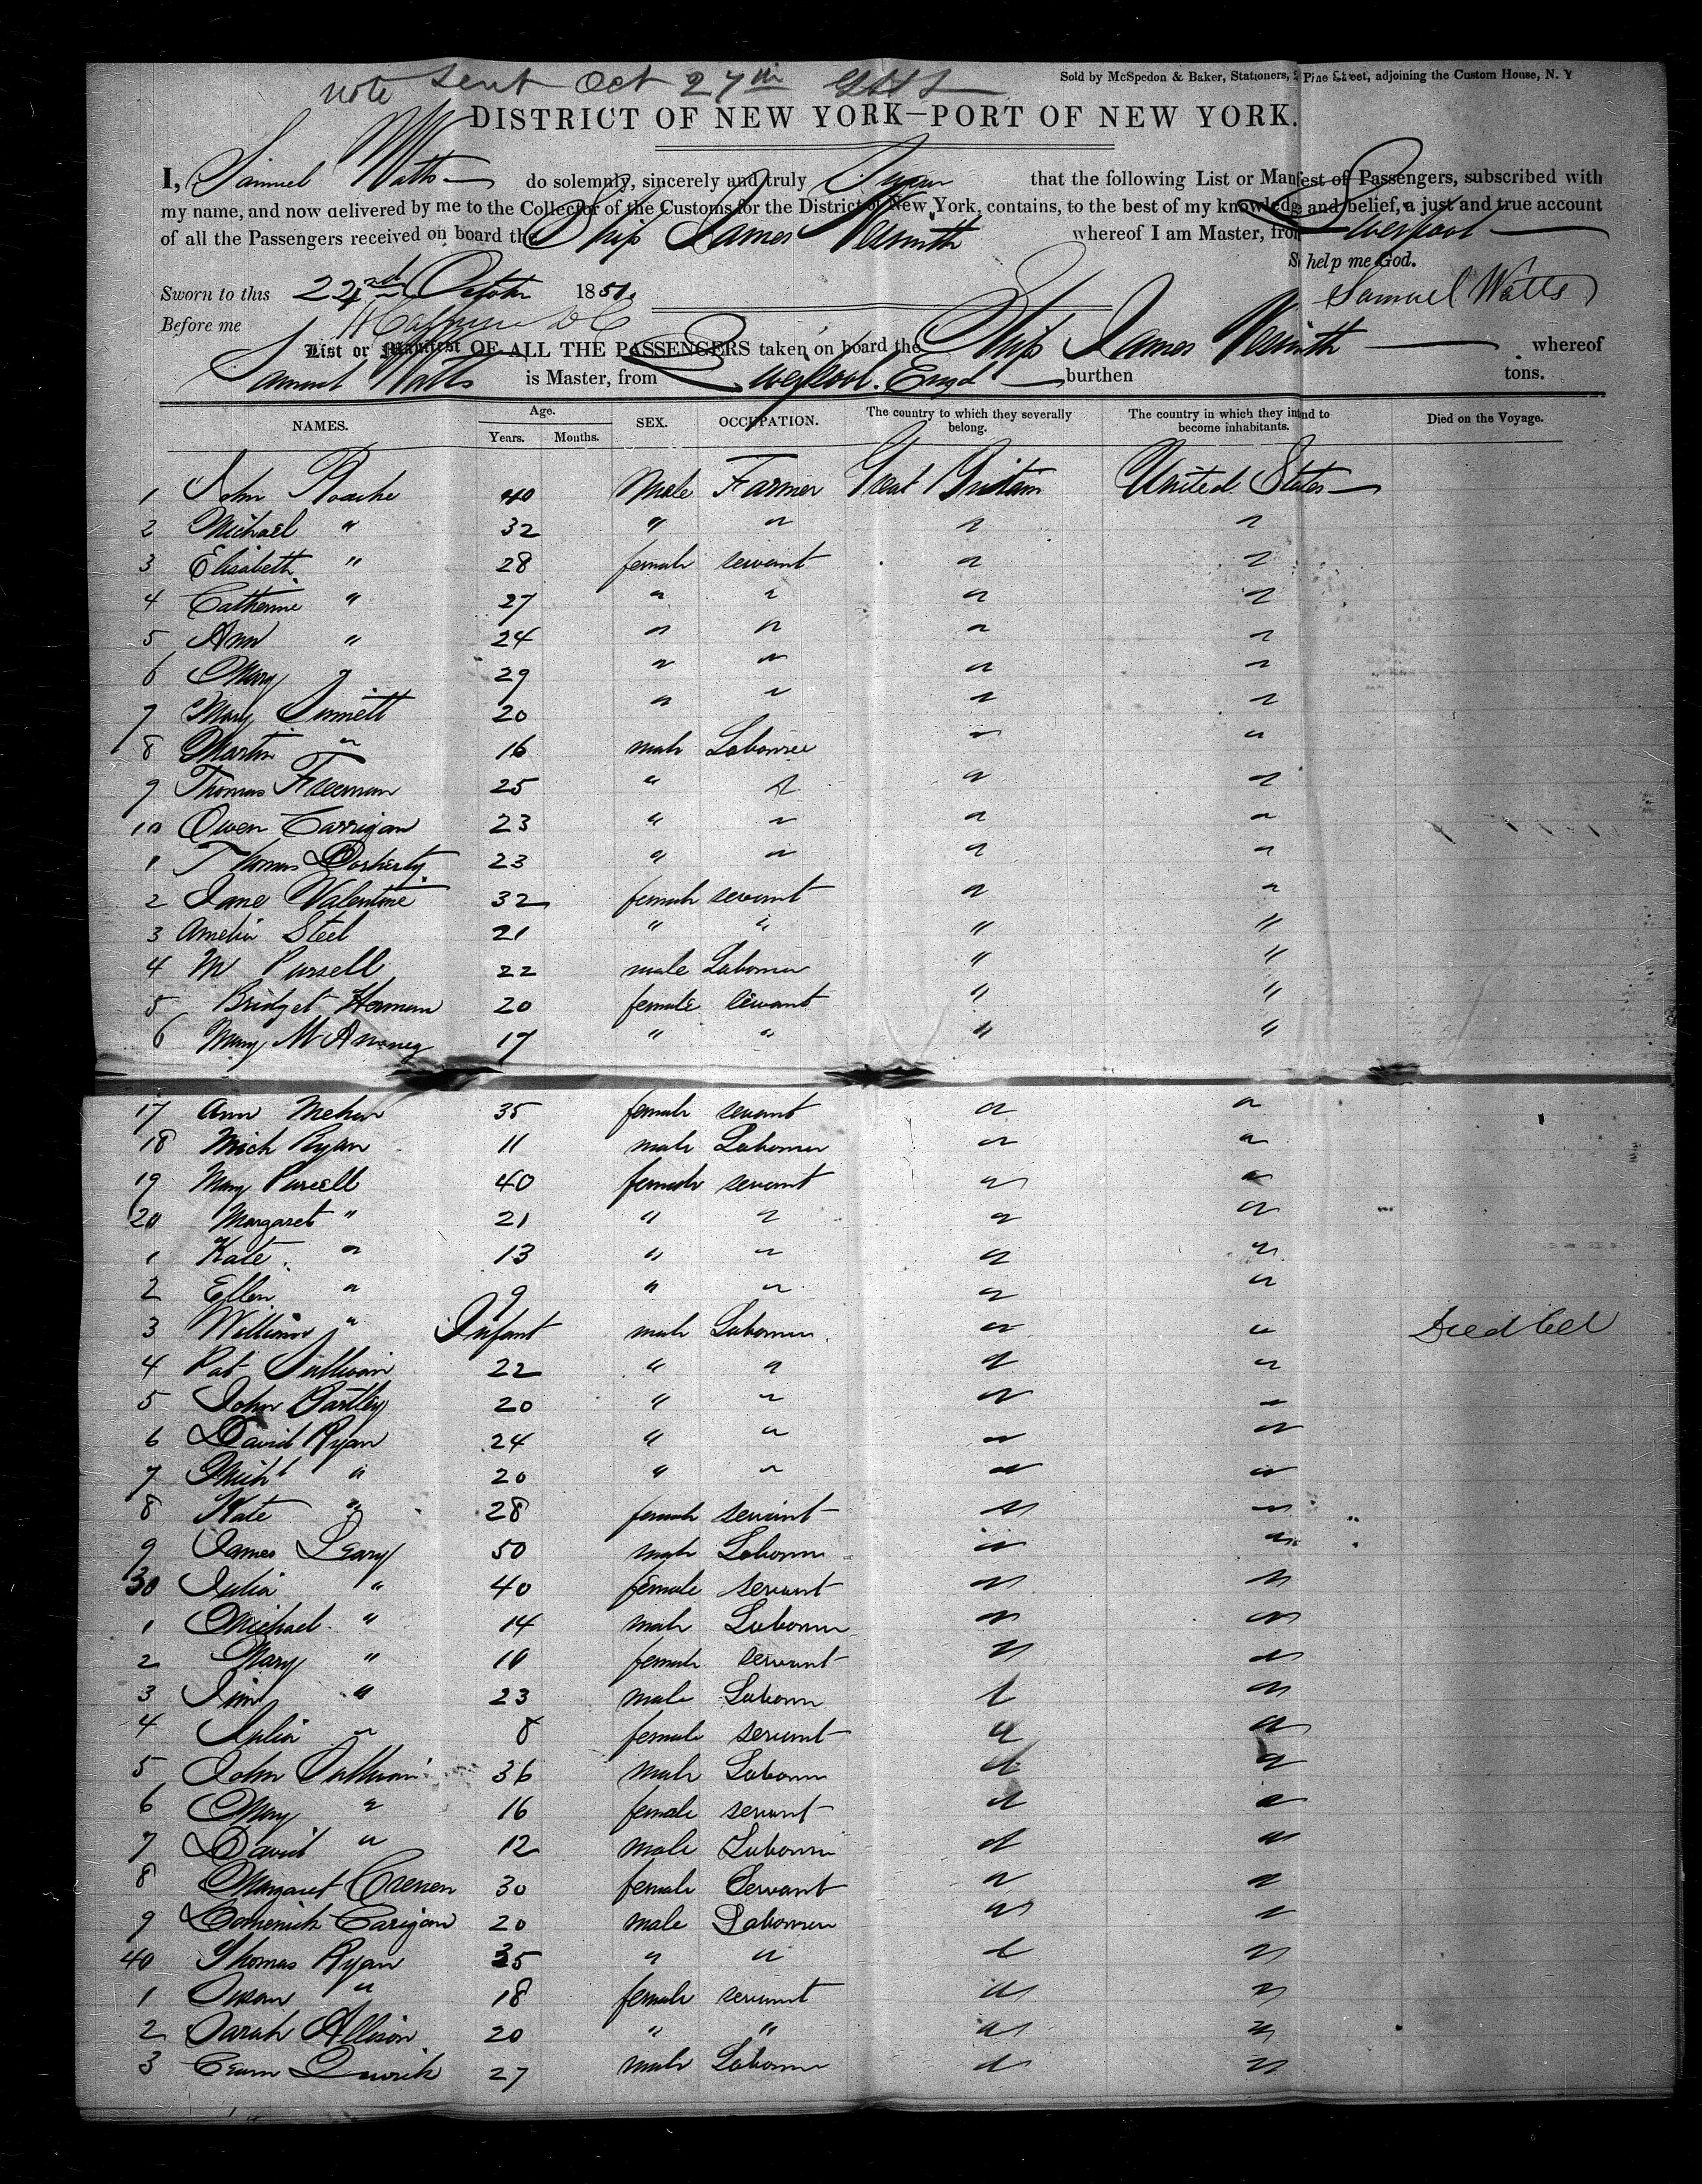 note sent Oct 27th
Sold by McSpedon & Baker, Stationers, Pine Street, adjoining the Custom House, N. Y
DISTRICT OF NEW YORK—PORT OF NEW YORK.
I, Samuel Watts do solemnly, sincerely and truly Swear that the following List or Manifest of Passengers, subscribed with
my name, and now delivered by me to the Collector of the Customs for the District of New York, contains, to the best of my knowledge and belief, a just and true account
of all the Passengers received on board the Ship James Nesmith whereof I am Master, from Liverpool
So help me God.
Sworn to this October 1851. Samuel Watts
Before me
List or Manifest OF ALL THE PASSENGERS taken on board the Ship James Nesmith whereof
Samuel Watts is Master, from Liverpool. Engd burthen tons.
NAMES. Age. Years. Months. SEX. OCCUPATION. The country to which they severally belong. The country in which they intend to become inhabitants. Died on the Voyage.
1 John Roache 40 Male Farmer Great Britain United States
2 Michael " 32 " " " "
3 Elisabeth " 28 female servant " "
4 Catherine " 27 " " " "
5 Ann " 24 " " " "
6 Mary " 29 " " " "
7 Mary Sinnett 20 " " " "
8 Martin " 16 male Labourer " "
9 Thomas Freeman 25 " " " "
10 Owen Carrigan 23 " " " "
1 Thomas Dorherty 23 " " " "
2 Jane Valentine 32 female servant " "
3 Amelia Steel 21 " " " "
4 M Pursell 22 male Labourer " "
5 Bridget 20 female servant " "
6 Mary 17 " " " "
17 Ann 35 female servant " "
18 Mich Ryan 11 male Labourer " "
19 Mary Purcell 40 female servant " "
20 Margaret " 21 " " " "
1 Kate " 13 " " " "
2 Ellen " 9 " " " "
3 William " Infant male Labourer " " Died
4 Pat Sullivan 22 " " " "
5 John Bartley 20 " " " "
6 David Ryan 24 " " " "
7 Michl " 20 " " " "
8 Kate " 28 female servant " "
9 James Leary 50 male Labourer " "
30 Julia " 40 female servant " "
1 Michael " 14 male Labourer " "
2 Mary " female servant " "
3 " 23 male Labourer " "
4 Julia " 8 female servant " "
5 John Sullivan 36 male Labourer " "
6 Mary " 16 female servant " "
7 David " 12 male Labourer " "
8 Margaret Crenen 30 female Servant " "
9 Domenick Carigan 20 male Labourer " "
40 Thomas Ryan 35 " " " "
1 Susan " 18 female servant " "
2 Sarah Allison 20 " " " "
3 27 male Labourer " "